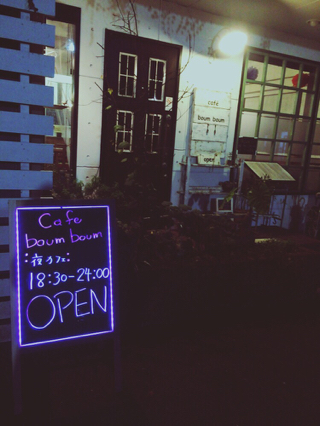 café
baum baum
open
Cafe
baum baum
:夜カフェ:
18:30-24:00
OPEN